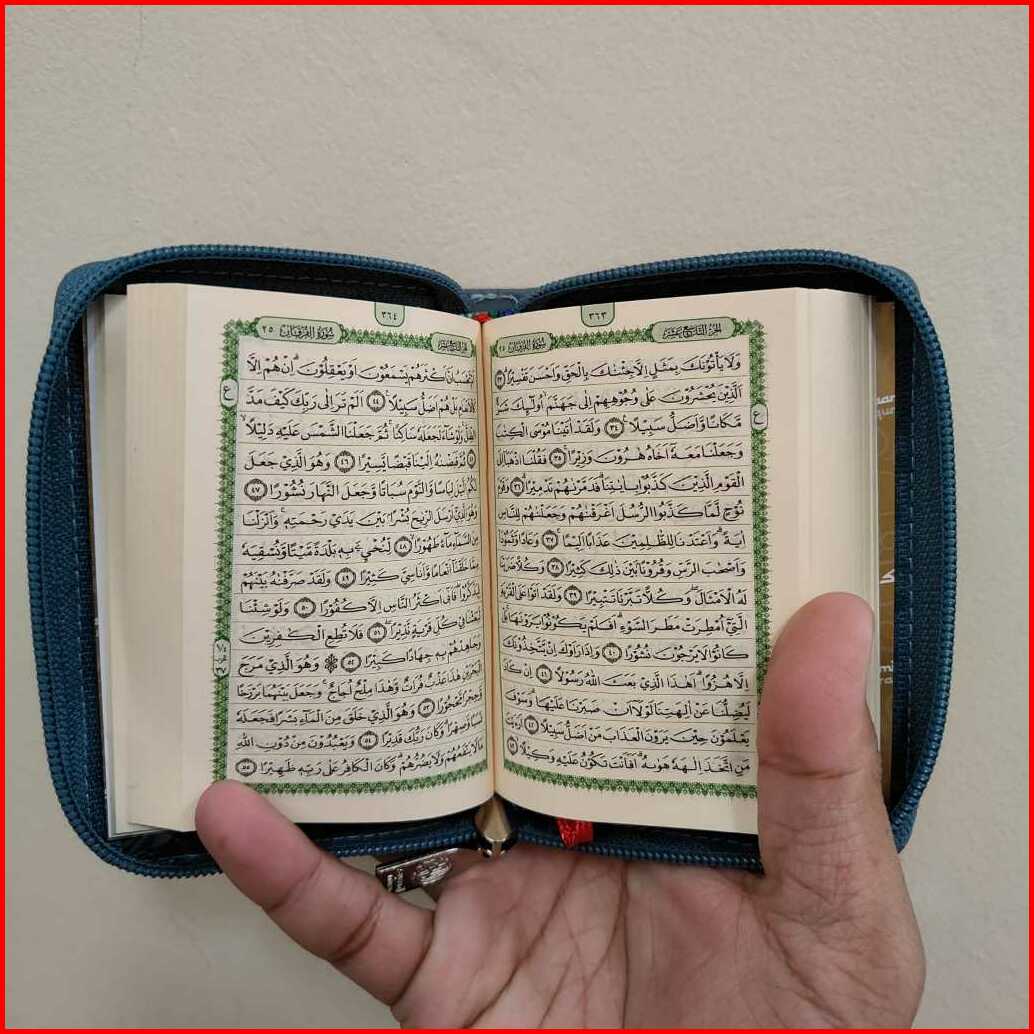 ٣٦٣
الجُزْءُ التَّاسِعَ عَشَرَ
سُوْرَةُ الْفُرْقَانِ ٢٥
وَلَا يَأْتُوْنَكَ بِمَثَلٍ اِلَّا جِئْنٰكَ بِالْحَقِّ وَاَحْسَنَ تَفْسِيْرًاۗ ٣٣
اَلَّذِيْنَ يُحْشَرُوْنَ عَلٰى وُجُوْهِهِمْ اِلٰى جَهَنَّمَۙ اُولٰۤىِٕكَ شَرٌّ
ع
مَّكَانًا وَّاَضَلُّ سَبِيْلًا ࣖ ٣٤ وَلَقَدْ اٰتَيْنَا مُوْسَى الْكِتٰبَ
وَجَعَلْنَا مَعَهٗٓ اَخَاهُ هٰرُوْنَ وَزِيْرًاۚ ٣٥ فَقُلْنَا اذْهَبَآ اِلَى
الْقَوْمِ الَّذِيْنَ كَذَّبُوْا بِاٰيٰتِنَاۗ فَدَمَّرْنٰهُمْ تَدْمِيْرًاۗ ٣٦ وَقَوْمَ
نُوْحٍ لَّمَّا كَذَّبُوا الرُّسُلَ اَغْرَقْنٰهُمْ وَجَعَلْنٰهُمْ لِلنَّاسِ
اٰيَةًۗ وَاَعْتَدْنَا لِلظّٰلِمِيْنَ عَذَابًا اَلِيْمًاۚ ٣٧ وَعَادًا وَّثَمُوْدَا۟
وَاَصْحٰبَ الرَّسِّ وَقُرُوْنًاۢ بَيْنَ ذٰلِكَ كَثِيْرًا ٣٨ وَكُلًّا ضَرَبْنَا
لَهُ الْاَمْثَالَۖ وَكُلًّا تَبَّرْنَا تَتْبِيْرًا ٣٩ وَلَقَدْ اَتَوْا عَلَى الْقَرْيَةِ
الَّتِيْٓ اُمْطِرَتْ مَطَرَ السَّوْءِۗ اَفَلَمْ يَكُوْنُوْا يَرَوْنَهَاۚ بَلْ
كَانُوْا لَا يَرْجُوْنَ نُشُوْرًا ٤٠ وَاِذَا رَاَوْكَ اِنْ يَّتَّخِذُوْنَكَ
اِلَّا هُزُوًاۗ اَهٰذَا الَّذِيْ بَعَثَ اللّٰهُ رَسُوْلًا ٤١ اِنْ كَادَ
لَيُضِلُّنَا عَنْ اٰلِهَتِنَا لَوْلَآ اَنْ صَبَرْنَا عَلَيْهَاۗ وَسَوْفَ
يَعْلَمُوْنَ حِيْنَ يَرَوْنَ الْعَذَابَ مَنْ اَضَلُّ سَبِيْلًا ٤٢ اَرَاَيْتَ
مَنِ اتَّخَذَ اِلٰهَهٗ هَوٰىهُۗ اَفَاَنْتَ تَكُوْنُ عَلَيْهِ وَكِيْلًاۙ ٤٣
٣٦٤
سُوْرَةُ الْفُرْقَانِ ٢٥
تَحْسَبُ اَنَّ اَكْثَرَهُمْ يَسْمَعُوْنَ اَوْ يَعْقِلُوْنَۗ اِنْ هُمْ اِلَّا
ع
كَالْاَنْعَامِ بَلْ هُمْ اَضَلُّ سَبِيْلًا ࣖ ٤٤ اَلَمْ تَرَ اِلٰى رَبِّكَ كَيْفَ مَدَّ
الظِّلَّۚ وَلَوْ شَاۤءَ لَجَعَلَهٗ سَاكِنًاۚ ثُمَّ جَعَلْنَا الشَّمْسَ عَلَيْهِ دَلِيْلًاۙ
ثُمَّ قَبَضْنٰهُ اِلَيْنَا قَبْضًا يَّسِيْرًا ٤٦ وَهُوَ الَّذِيْ جَعَلَ
لَكُمُ الَّيْلَ لِبَاسًا وَّالنَّوْمَ سُبَاتًا وَّجَعَلَ النَّهَارَ نُشُوْرًا ٤٧
وَهُوَ الَّذِيْٓ اَرْسَلَ الرِّيٰحَ بُشْرًاۢ بَيْنَ يَدَيْ رَحْمَتِهٖۚ وَاَنْزَلْنَا
مِنَ السَّمَاۤءِ مَاۤءً طَهُوْرًاۙ ٤٨ لِّنُحْيِ َۧ بِهٖ بَلْدَةً مَّيْتًا وَّنُسْقِيَهٗ
مِمَّا خَلَقْنَآ اَنْعَامًا وَّاَنَاسِيَّ كَثِيْرًا ٤٩ وَلَقَدْ صَرَّفْنٰهُ بَيْنَهُمْ
لِيَذَّكَّرُوْاۖ فَاَبٰىٓ اَكْثَرُ النَّاسِ اِلَّا كُفُوْرًا ٥٠ وَلَوْ شِئْنَا
لَبَعَثْنَا فِيْ كُلِّ قَرْيَةٍ نَّذِيْرًاۖ ٥١ فَلَا تُطِعِ الْكٰفِرِيْنَ
وَجَاهِدْهُمْ بِهٖ جِهَادًا كَبِيْرًا ٥٢ ۞ وَهُوَ الَّذِيْ مَرَجَ
الْبَحْرَيْنِ هٰذَا عَذْبٌ فُرَاتٌ وَّهٰذَا مِلْحٌ اُجَاجٌۚ وَجَعَلَ بَيْنَهُمَا بَرْزَخًا
وَّحِجْرًا مَّحْجُوْرًا ٥٣ وَهُوَ الَّذِيْ خَلَقَ مِنَ الْمَاۤءِ بَشَرًا فَجَعَلَهٗ
نَسَبًا وَّصِهْرًاۗ وَكَانَ رَبُّكَ قَدِيْرًا ٥٤ وَيَعْبُدُوْنَ مِنْ دُوْنِ اللّٰهِ
مَا لَا يَنْفَعُهُمْ وَلَا يَضُرُّهُمْۗ وَكَانَ الْكَافِرُ عَلٰى رَبِّهٖ ظَهِيْرًا ٥٥